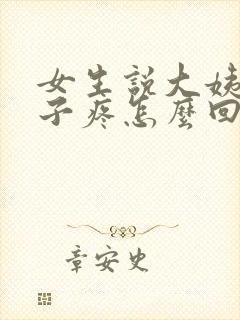 女生說大姨
子疼怎麼回
章安史